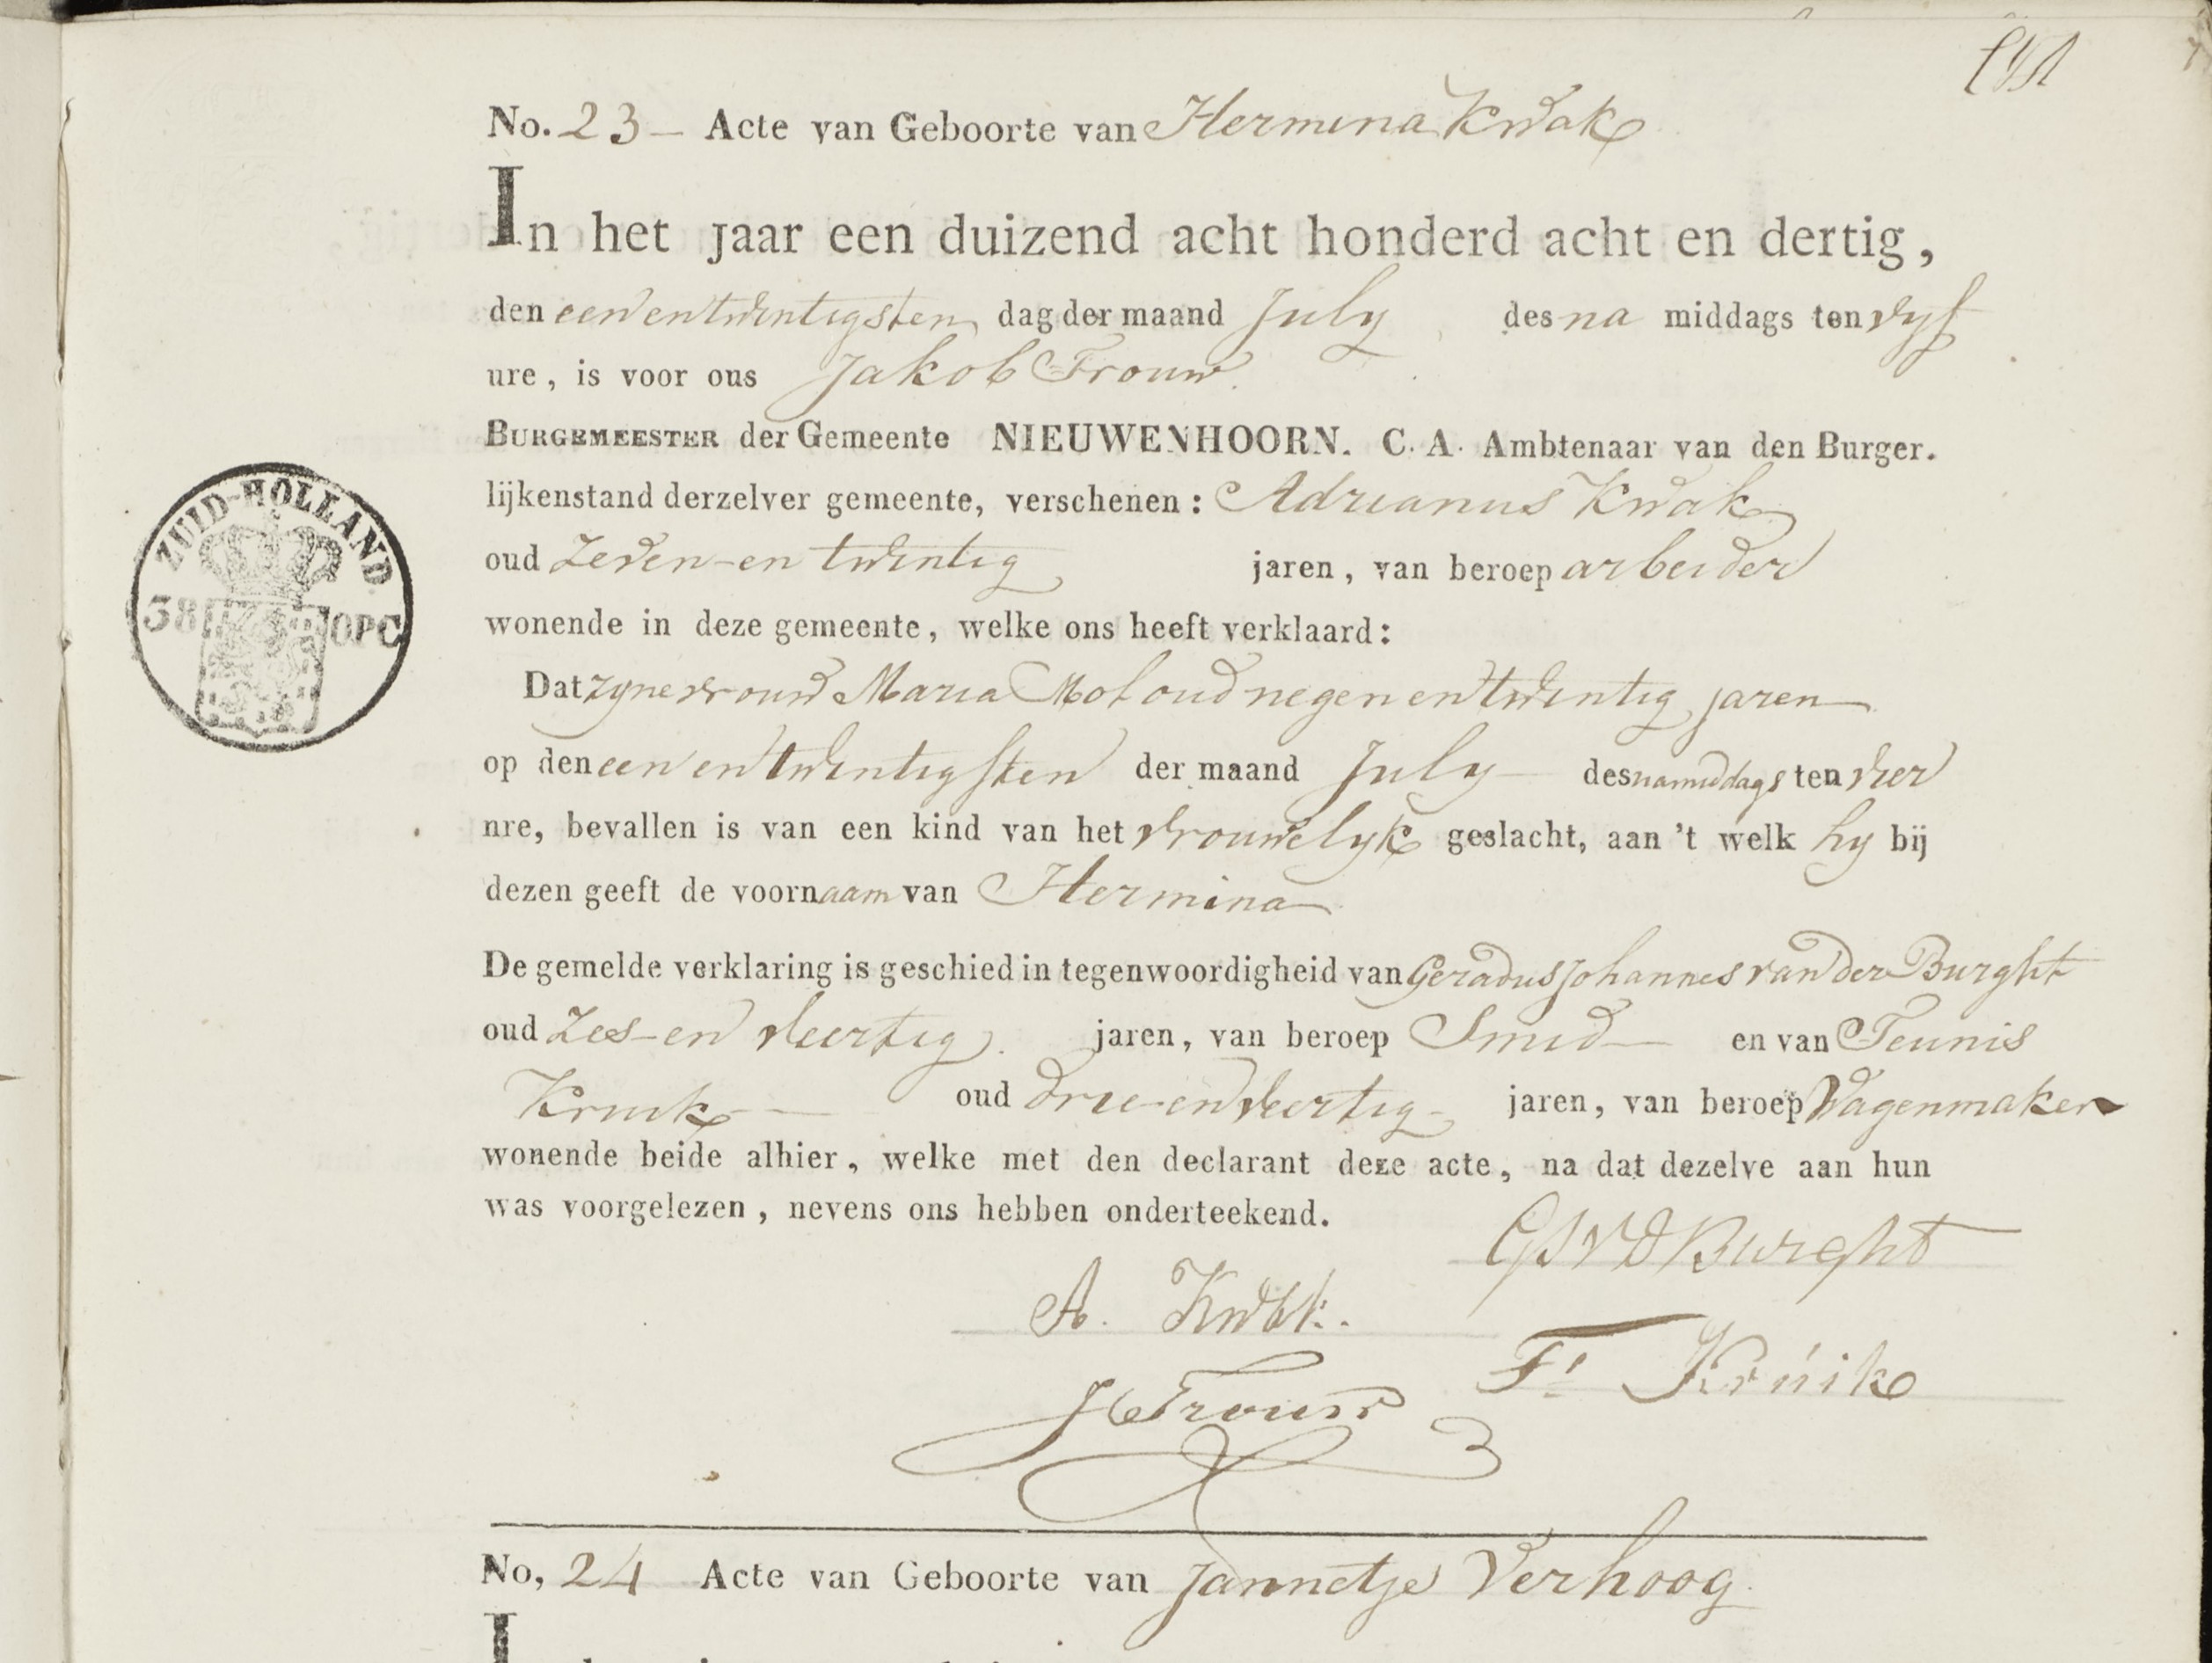 No. 23 - Acte van Geboorte van Hermina Kwak
In het jaar een duizend acht honderd acht en dertig,
den een en twintigsten dag der maand July des na middags ten vyf
ure, is voor ons Jakob Trouw
BURGEMEESTER der Gemeente NIEUWENHOORN. C. A. Ambtenaar van den Burger.
lijkenstand derzelver gemeente, verschenen: Adrianus Kwak
oud Zeven-en twintig jaren, van beroep arbeider
wonende in deze gemeente, welke ons heeft verklaard:
Dat zyne vrouw Maria Mol oud negen en twintig jaren
op den een en twintigsten der maand July des namiddags ten vier
ure, bevallen is van een kind van het vrouwelyk geslacht, aan 't welk hy bij
dezen geeft de voornaam van Hermina
De gemelde verklaring is geschied in tegenwoordigheid van Geradus Johannes van der Burght
oud Zes-en veertig jaren, van beroep Smid en van Teunis
Kruik oud drie-en veertig jaren, van beroep Wagenmaker
wonende beide alhier, welke met den declarant deze acte, na dat dezelve aan hun
was voorgelezen, nevens ons hebben onderteekend.
GJVDBurght
A. Kwak.
Ts Kruik
J Trouw
ZUID-HOLLAND
38 OPC
No, 24 Acte van Geboorte van Jannetje Verhoog